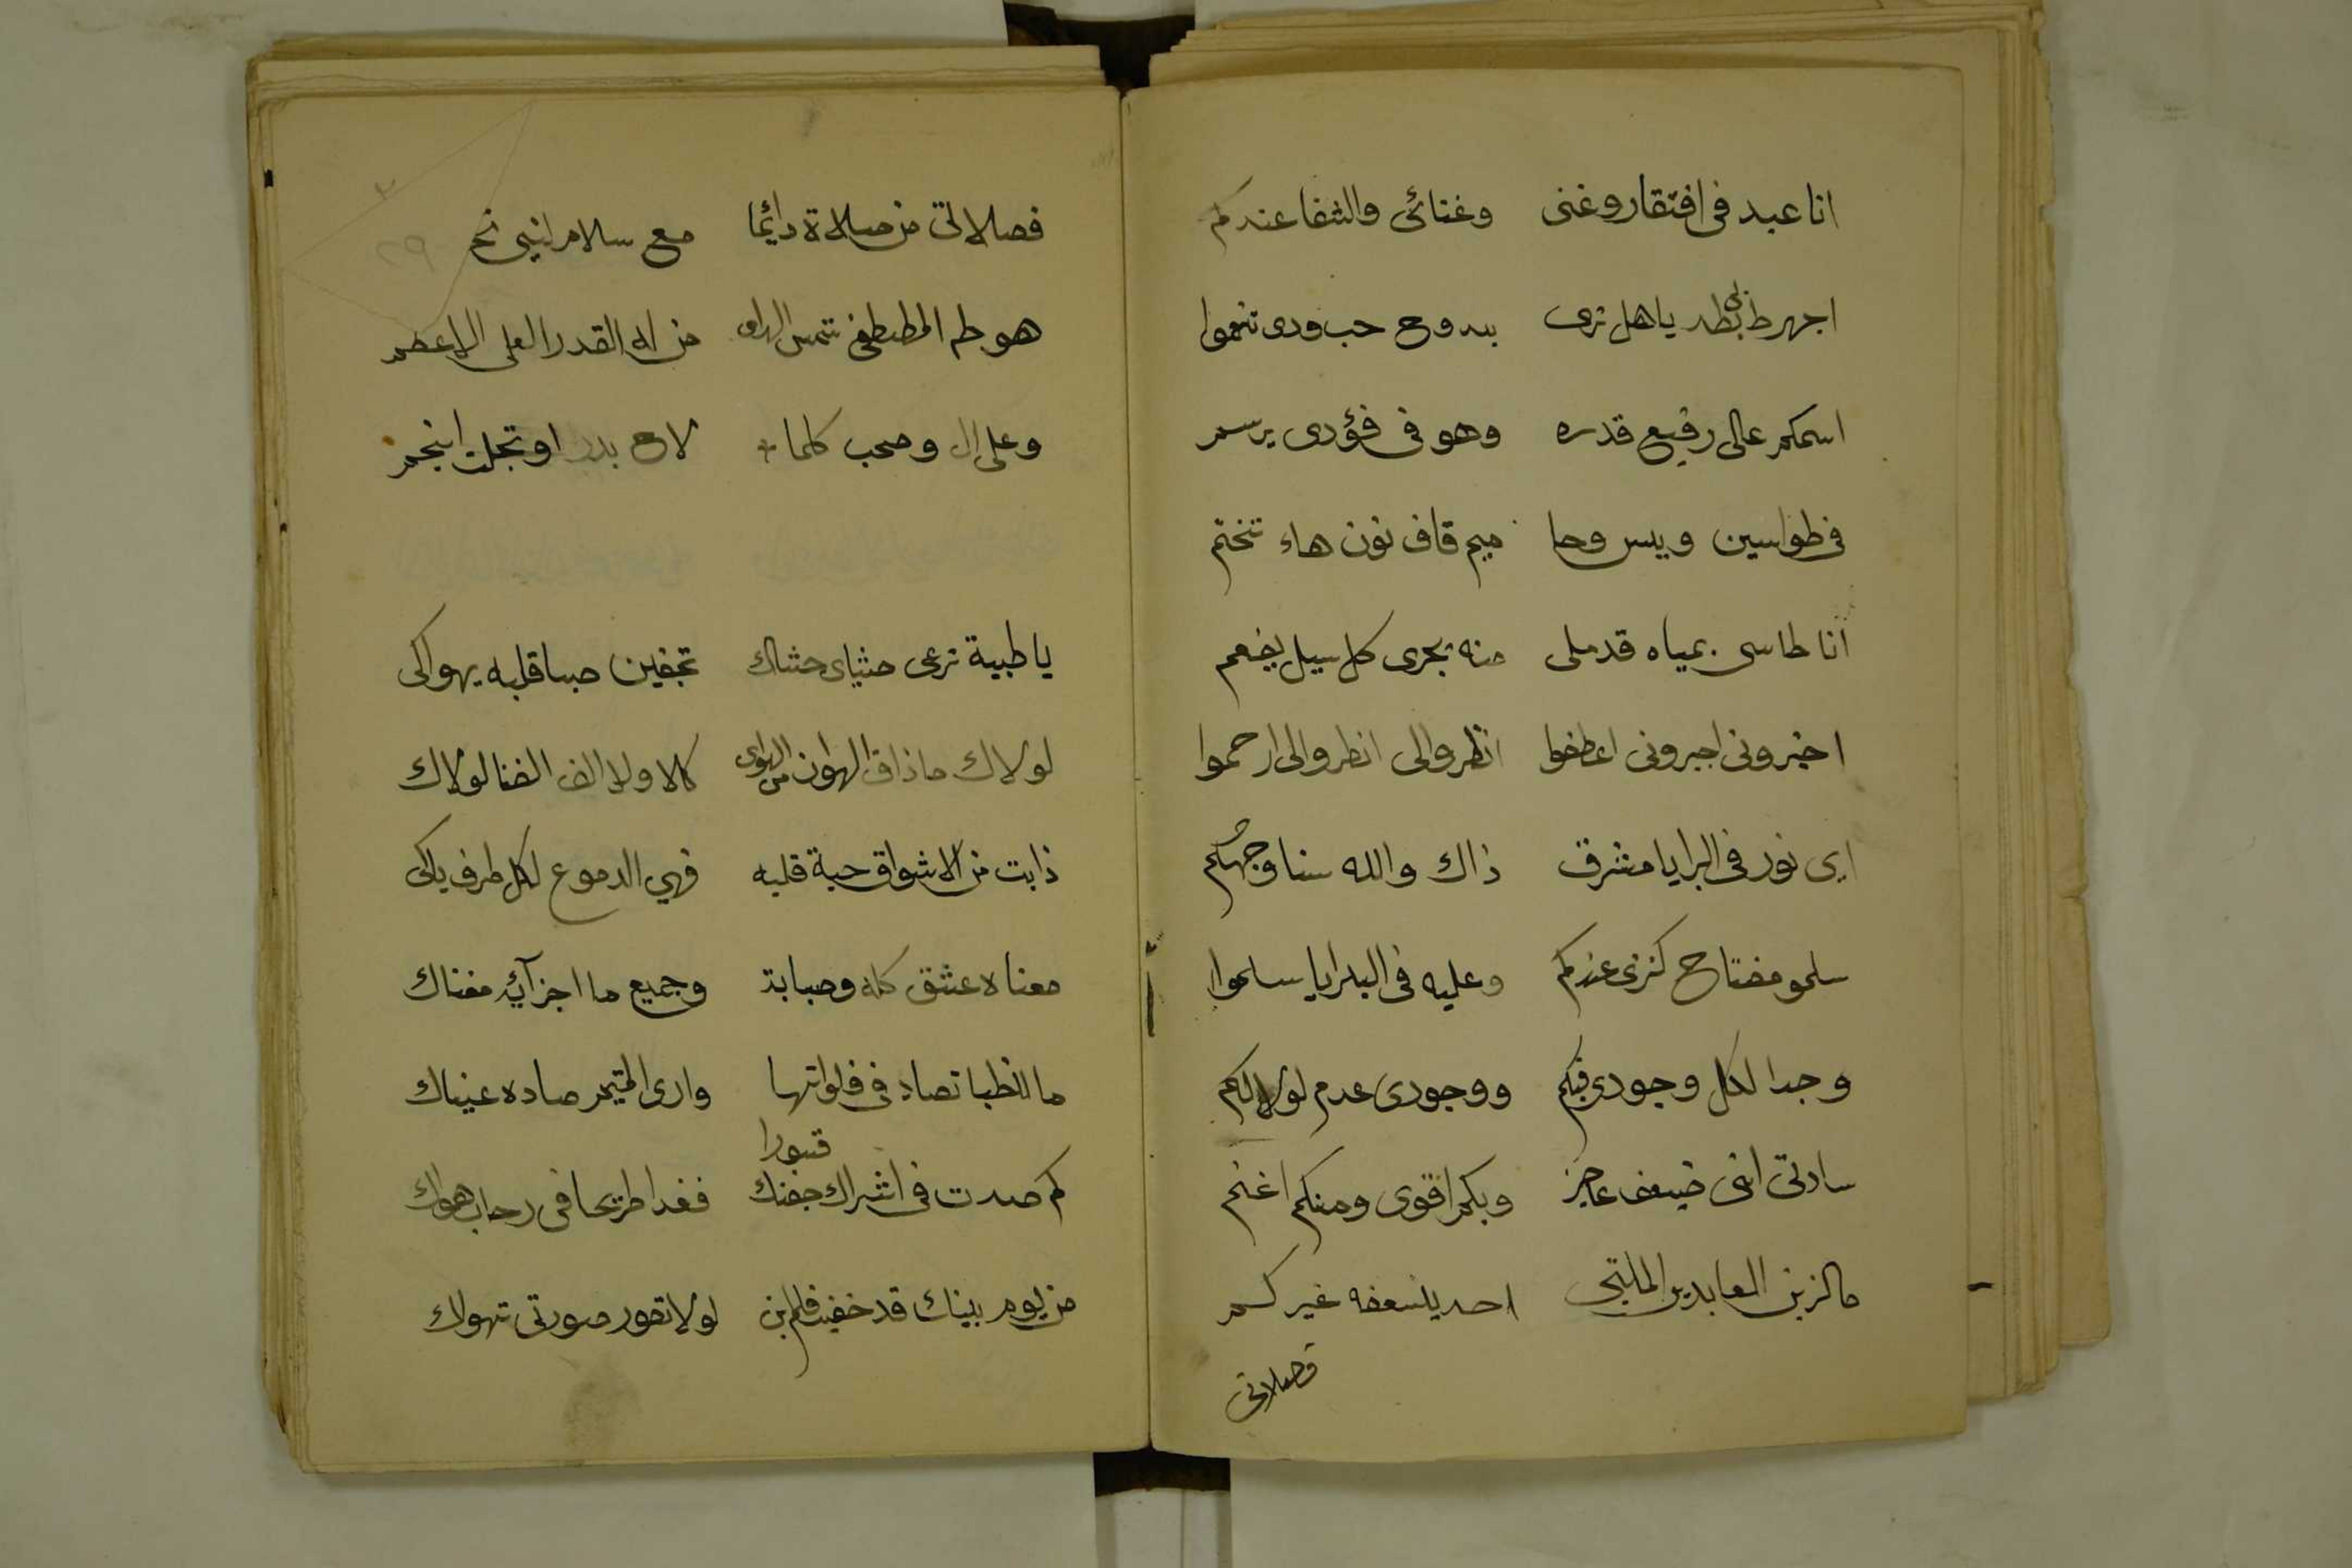 انا عبد فى افتقار وغنى وغنائى والشفا عندكم
اجهرط بطد ياهل ترى ببدوح حب ودى تنعموا
اسمكم عالى رفيع قدره وهو فى فؤدى يرسم
فى طواسين ويس وحا ميم قاف نون هاء تختم
انا طاسى بمياه قد ملى منه يجرى كل سيل يفعم
اخبرونى اجبرونى اعطفوا انظروا لى انظروا لى ارحموا
اى نور فى البرايا مشرق ذاك والله سنا وجهكم
سلمو مفتاح كنزى عندكم وعليه فى البرايا سلموا
وجدا لكل وجودى فيكم ووجودى عدم لولاكم
سادتى اننى ضيعف عاجز وبكم اقوى ومنكم اغنم
مالزين العابدين الملتجى احد يسعفه غيركم
فصلاتى
فصلاتى من صلاة دائما مع سلام لنبى
٢٩
هو طه المصطفى شمس الهدى من له القدر العلى الاعظم
وعلى ال وصحب كلما لاح بدر او تجلت انجم
ياظبية ترعى حشاى حشاك تجفين صبا قلبه يهواكى
لولاك ماذاق الهوان من الهوى كلا ولا الف الضنا لولاك
ذابت من الاشواق حبة قلبه فهي الدموع لكل طرف باكى
معناه عشق كله وصبابة وجميع ما اجزآئه مغناك
ما للظبا تصاد فى فلواتها وارى المتيم صاده عيناك
كم صدت فى اشراك جفنك قسورا فغدا طريحا فى رحاب هواك
من يوم بينك قد خفيت فلم ابن لولا تصور صورتى تهواك